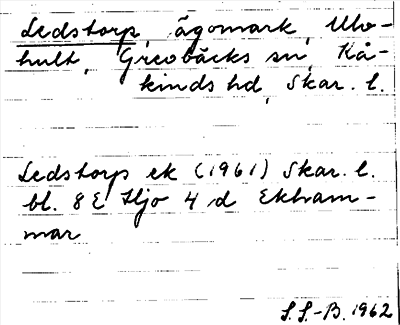 Ledstorp, ägomark, Ulv-
hult, Grevbäcks sn, Kå-
kinds hd, Skar. l.
Ledstorp ek (1961) Skar. l.
bl. 8 E Hjo 4 d Ekham-
mar
S.S.-B. 1962